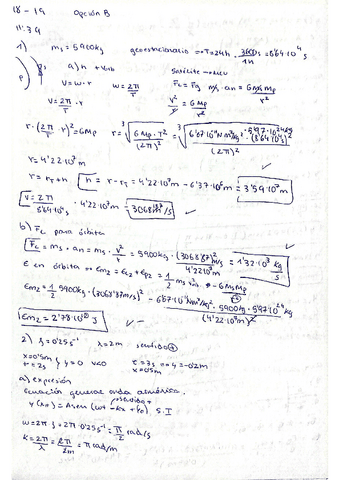 18-19 Opción B
11:39
1) ms = 5900kg geoestacionario → T = 24h · 3600s/1h = 8'64·10⁴ s
a) h y vorb satélite
v = w·r w = 2π/T Fc = Fg ms · an = G ms Mp/r²
v = 2π/T · r v²/r = G Mp/r²
r·(2π/T · r)² = G Mp r = ∛(G Mp · T²/(2π)²) = ∛(6'67·10⁻¹¹ N m²/kg² · 5'97·10²⁴ kg · (8'64·10⁴ s)²/(2π)²)
r = 4'22·10⁷ m
r = rT + h h = r - rT = 4'22·10⁷ m - 6'37·10⁶ m = 3'59·10⁷ m
v = 2π/8'64·10⁴ s · 4'22·10⁷ m = 3068'87 m/s
b) Fc para órbita
Fc = ms · an = ms · v²/r = 5900kg · (3068'87)² m/s/4'22·10⁷ m = 1'32·10³ kg/s
E en órbita → Em2 = Ec2 + Ep2 = 1/2 ms v² - G Ms Mp/r
Em2 = 1/2 5900kg · (3068'87 m/s)² - 6'67·10⁻¹¹ N m²/kg² · 5900kg · 5'97·10²⁴ kg/(4'22·10⁷ m)²
Em2 = 2'78·10¹⁰ J
2) f = 0'25 s⁻¹ λ = 2m sentido +
x = 0'5m t = 2s } y = 0 v<0 t = 3s x = 0'5m → y = -0'2m
a) expresión
Ecuación general onda armónica.
sentido +
y(x,t) = A sen (wt - kx + φ0) S.I
w = 2π f = 2π 0'25 s⁻¹ = π/2 rad/s
k = 2π/λ = 2π/2m = π rad/m